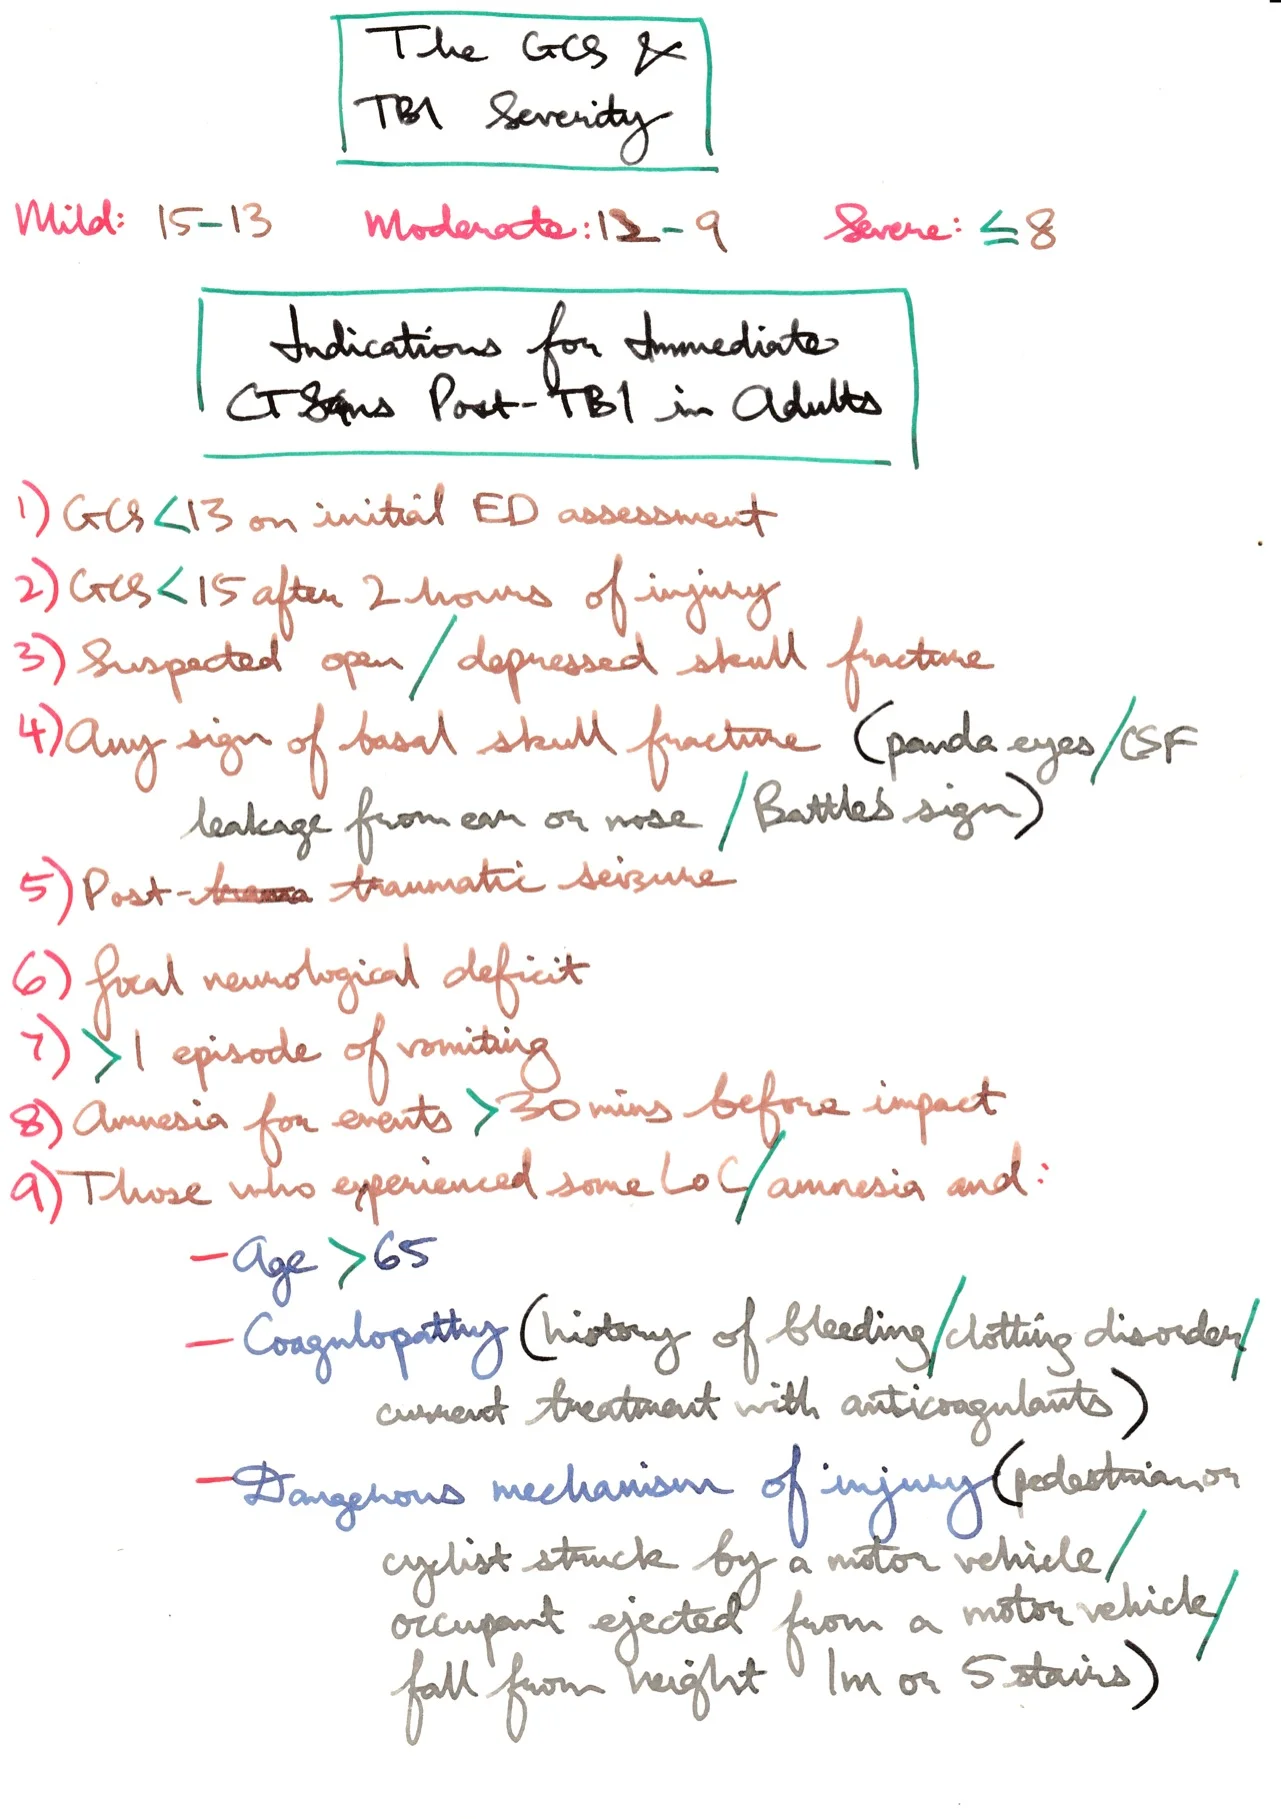 The GCS &
TBI Severity
Mild: 15-13 Moderate: 12-9 Severe: ≤8
Indications for Immediate
CT Scans Post-TBI in Adults
1) GCS <13 on initial ED assessment
2) GCS <15 after 2 hours of injury
3) Suspected open / depressed skull fracture
4) Any sign of basal skull fracture (panda eyes / CSF
leakage from ear or nose / Battle's sign)
5) Post- traumatic seizure
6) focal neurological deficit
7) >1 episode of vomiting
8) Amnesia for events >30 mins before impact
9) Those who experienced some LoC / amnesia and:
- Age >65
- Coagulopathy (history of bleeding / clotting disorder /
current treatment with anticoagulants)
- Dangerous mechanism of injury (pedestrian or
cyclist struck by a motor vehicle /
occupant ejected from a motor vehicle /
fall from height 1m or 5 stairs)